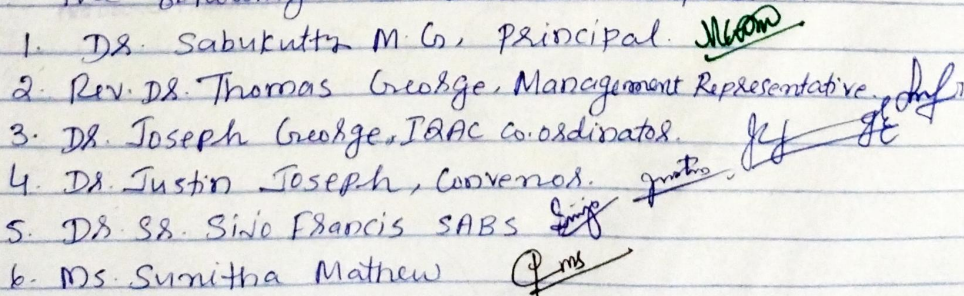 1. Dr. Sabukutty M.G, Principal.
2. Rev. Dr. Thomas George, Management Representative.
3. Dr. Joseph George, IQAC Co.ordinator.
4. Dr. Justin Joseph, Convenor.
5. Dr. Sr. Sijo Francis SABS
6. Ms. Sunitha Mathew